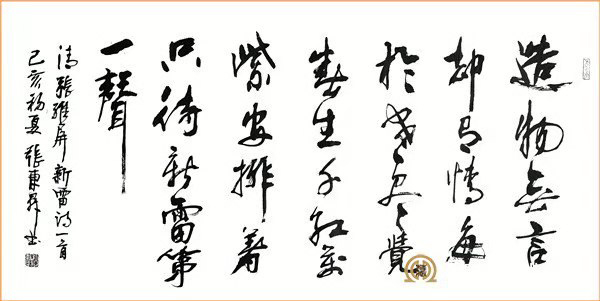 造物無言
却有情每
於寒盡覺
春生千紅萬
紫安排着
只待新雷第
一聲
清張維屏新雷詩一首
己亥初夏張東书